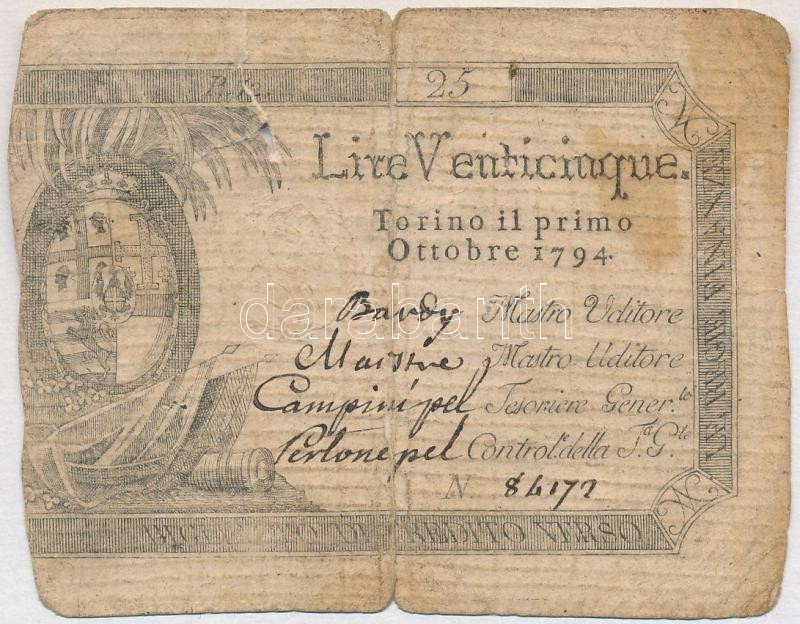 25
Lire Venticinque.
Torino il primo
Ottobre 1794.
darabanth
Mastro Uditore
Maistre Mastro Uditore
Campini pel Tesoriere Gener.le
Pertone pel Control.e della T.a G.le
N 84172
CREDITO VERSO